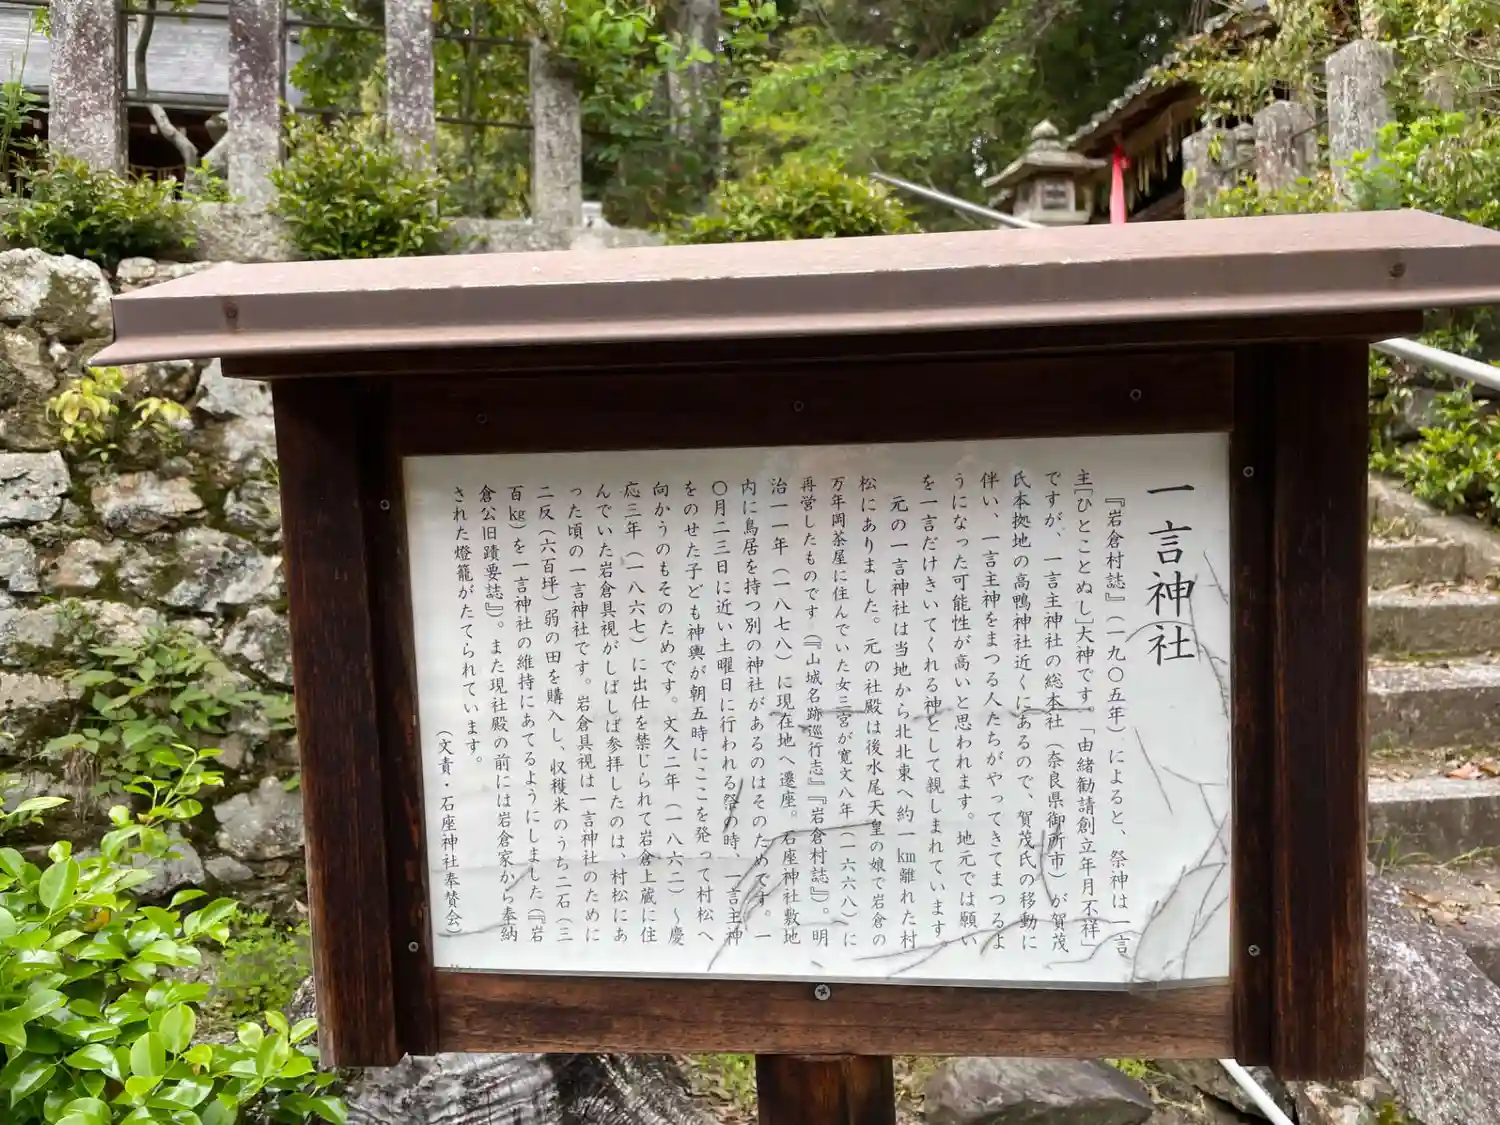 一言神社
『岩倉村誌』（一九〇五年）によると、祭神は一言
主［ひとことぬし］大神です。「由緒勧請創立年月不祥」
ですが、一言主神社の総本社（奈良県御所市）が賀茂
氏本拠地の高鴨神社近くにあるので、賀茂氏の移動に
伴い、一言主神をまつる人たちがやってきてまつるよ
うになった可能性が高いと思われます。地元では願い
を一言だけきいてくれる神として親しまれています。
元の一言神社は当地から北北東へ約一km離れた村
松にありました。元の社殿は後水尾天皇の娘で岩倉の
万年岡茶屋に住んでいた女三宮が寛文八年（一六六八）に
再営したものです（『山城名跡巡行志』『岩倉村誌』）。明
治一一年（一八七八）に現在地へ遷座。石座神社敷地
内に鳥居を持つ別の神社があるのはそのためです。一
〇月二三日に近い土曜日に行われる祭の時、一言主神
をのせた子ども神輿が朝五時にここを発って村松へ
向かうのもそのためです。文久二年（一八六二）～慶
応三年（一八六七）に出仕を禁じられて岩倉上蔵に住
んでいた岩倉具視がしばしば参拝したのは、村松にあ
った頃の一言神社です。岩倉具視は一言神社のために
二反（六百坪）弱の田を購入し、収穫米のうち二石（三
百kg）を一言神社の維持にあてるようにしました（『岩
倉公旧蹟要誌』）。また現社殿の前には岩倉家から奉納
された燈籠がたてられています。
（文責・石座神社奉賛会）